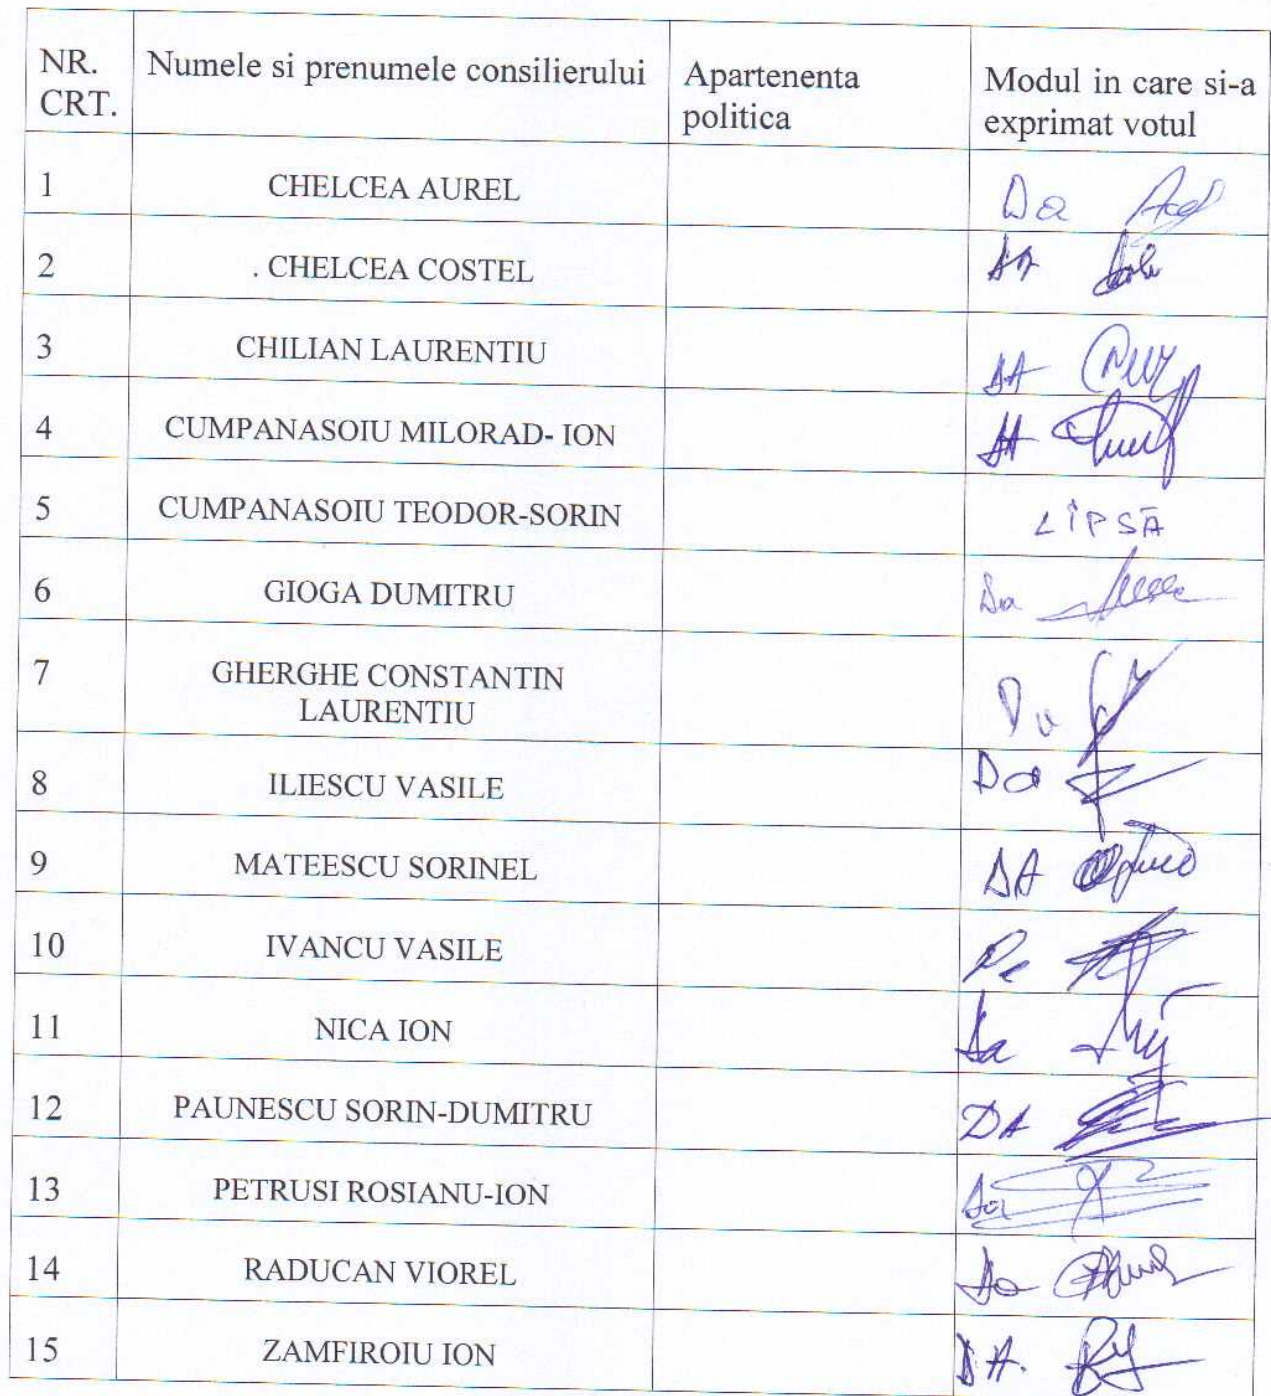 NR. CRT. Numele si prenumele consilierului Apartenenta politica Modul in care si-a exprimat votul
1 CHELCEA AUREL Da
2 . CHELCEA COSTEL DA
3 CHILIAN LAURENTIU DA
4 CUMPANASOIU MILORAD- ION DA
5 CUMPANASOIU TEODOR-SORIN LÎPSĂ
6 GIOGA DUMITRU Da
7 GHERGHE CONSTANTIN
LAURENTIU Da
8 ILIESCU VASILE Da
9 MATEESCU SORINEL DA
10 IVANCU VASILE Da
11 NICA ION Da
12 PAUNESCU SORIN-DUMITRU DA
13 PETRUSI ROSIANU-ION Da
14 RADUCAN VIOREL Da
15 ZAMFIROIU ION DA.